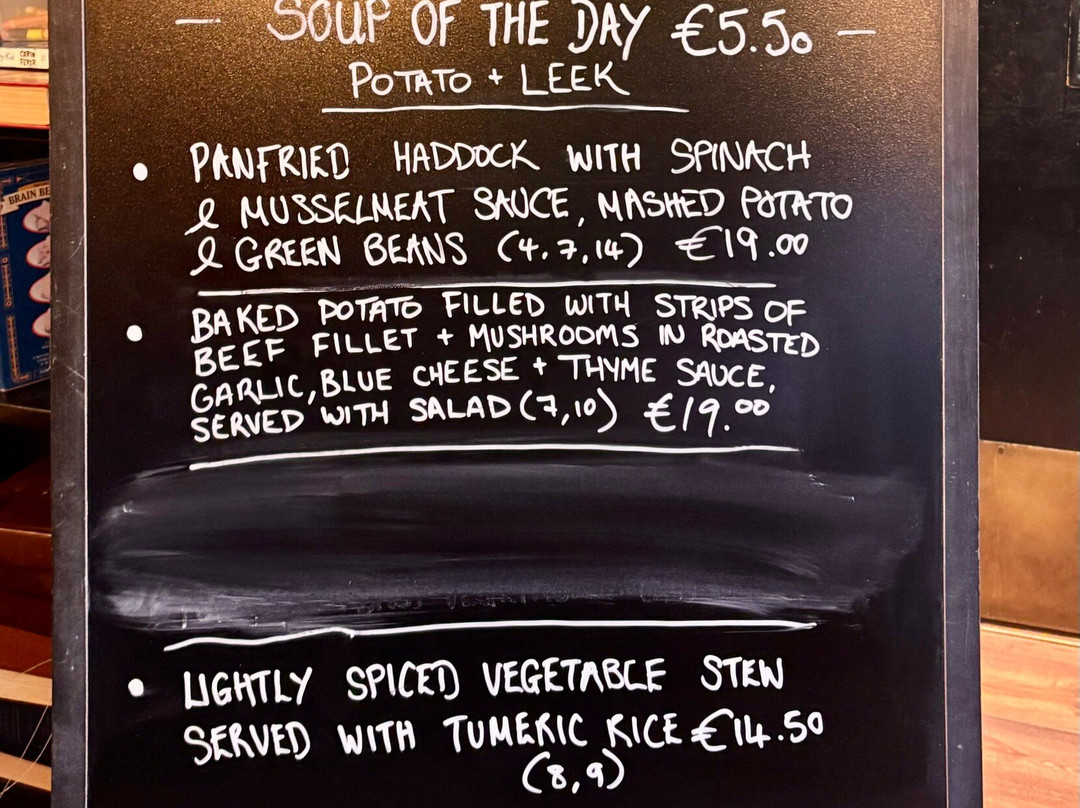 — SOUP OF THE DAY €5.50 —
POTATO + LEEK
• PANFRIED HADDOCK WITH SPINACH
& MUSSELMEAT SAUCE, MASHED POTATO
& GREEN BEANS (4,7,14) €19.00
• BAKED POTATO FILLED WITH STRIPS OF
BEEF FILLET + MUSHROOMS IN ROASTED
GARLIC, BLUE CHEESE + THYME SAUCE,
SERVED WITH SALAD (7,10) €19.00
• LIGHTLY SPICED VEGETABLE STEW
SERVED WITH TUMERIC RICE €14.50
(8,9)
CABIN
FEVER
BRAIN BE